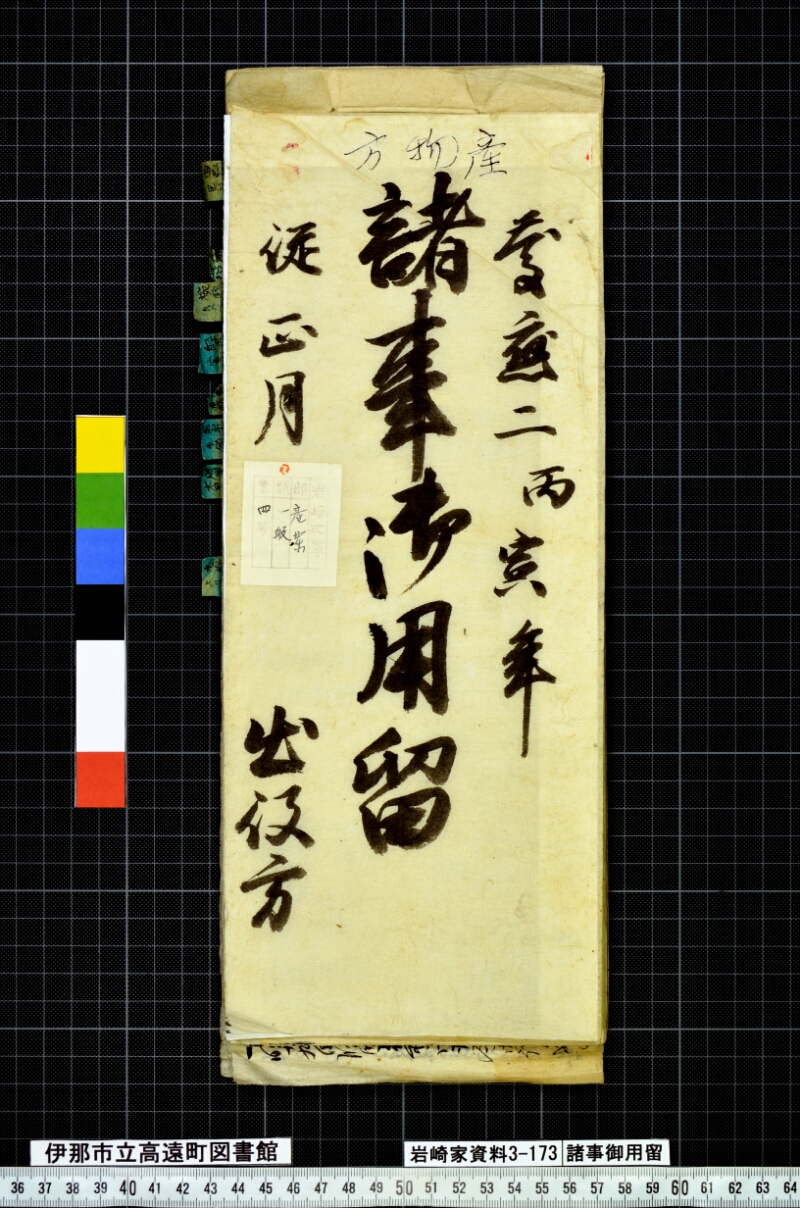 産物方
慶應二丙寅年
諸事御用留
従正月
出役方
産業
一般
四
伊那市立高遠町図書館
岩崎家資料3-173
諸事御用留
36 37 38 39 40 41 42 43 44 45 46 47 48 49 50 51 52 53 54 55 56 57 58 59 60 61 62 63 64